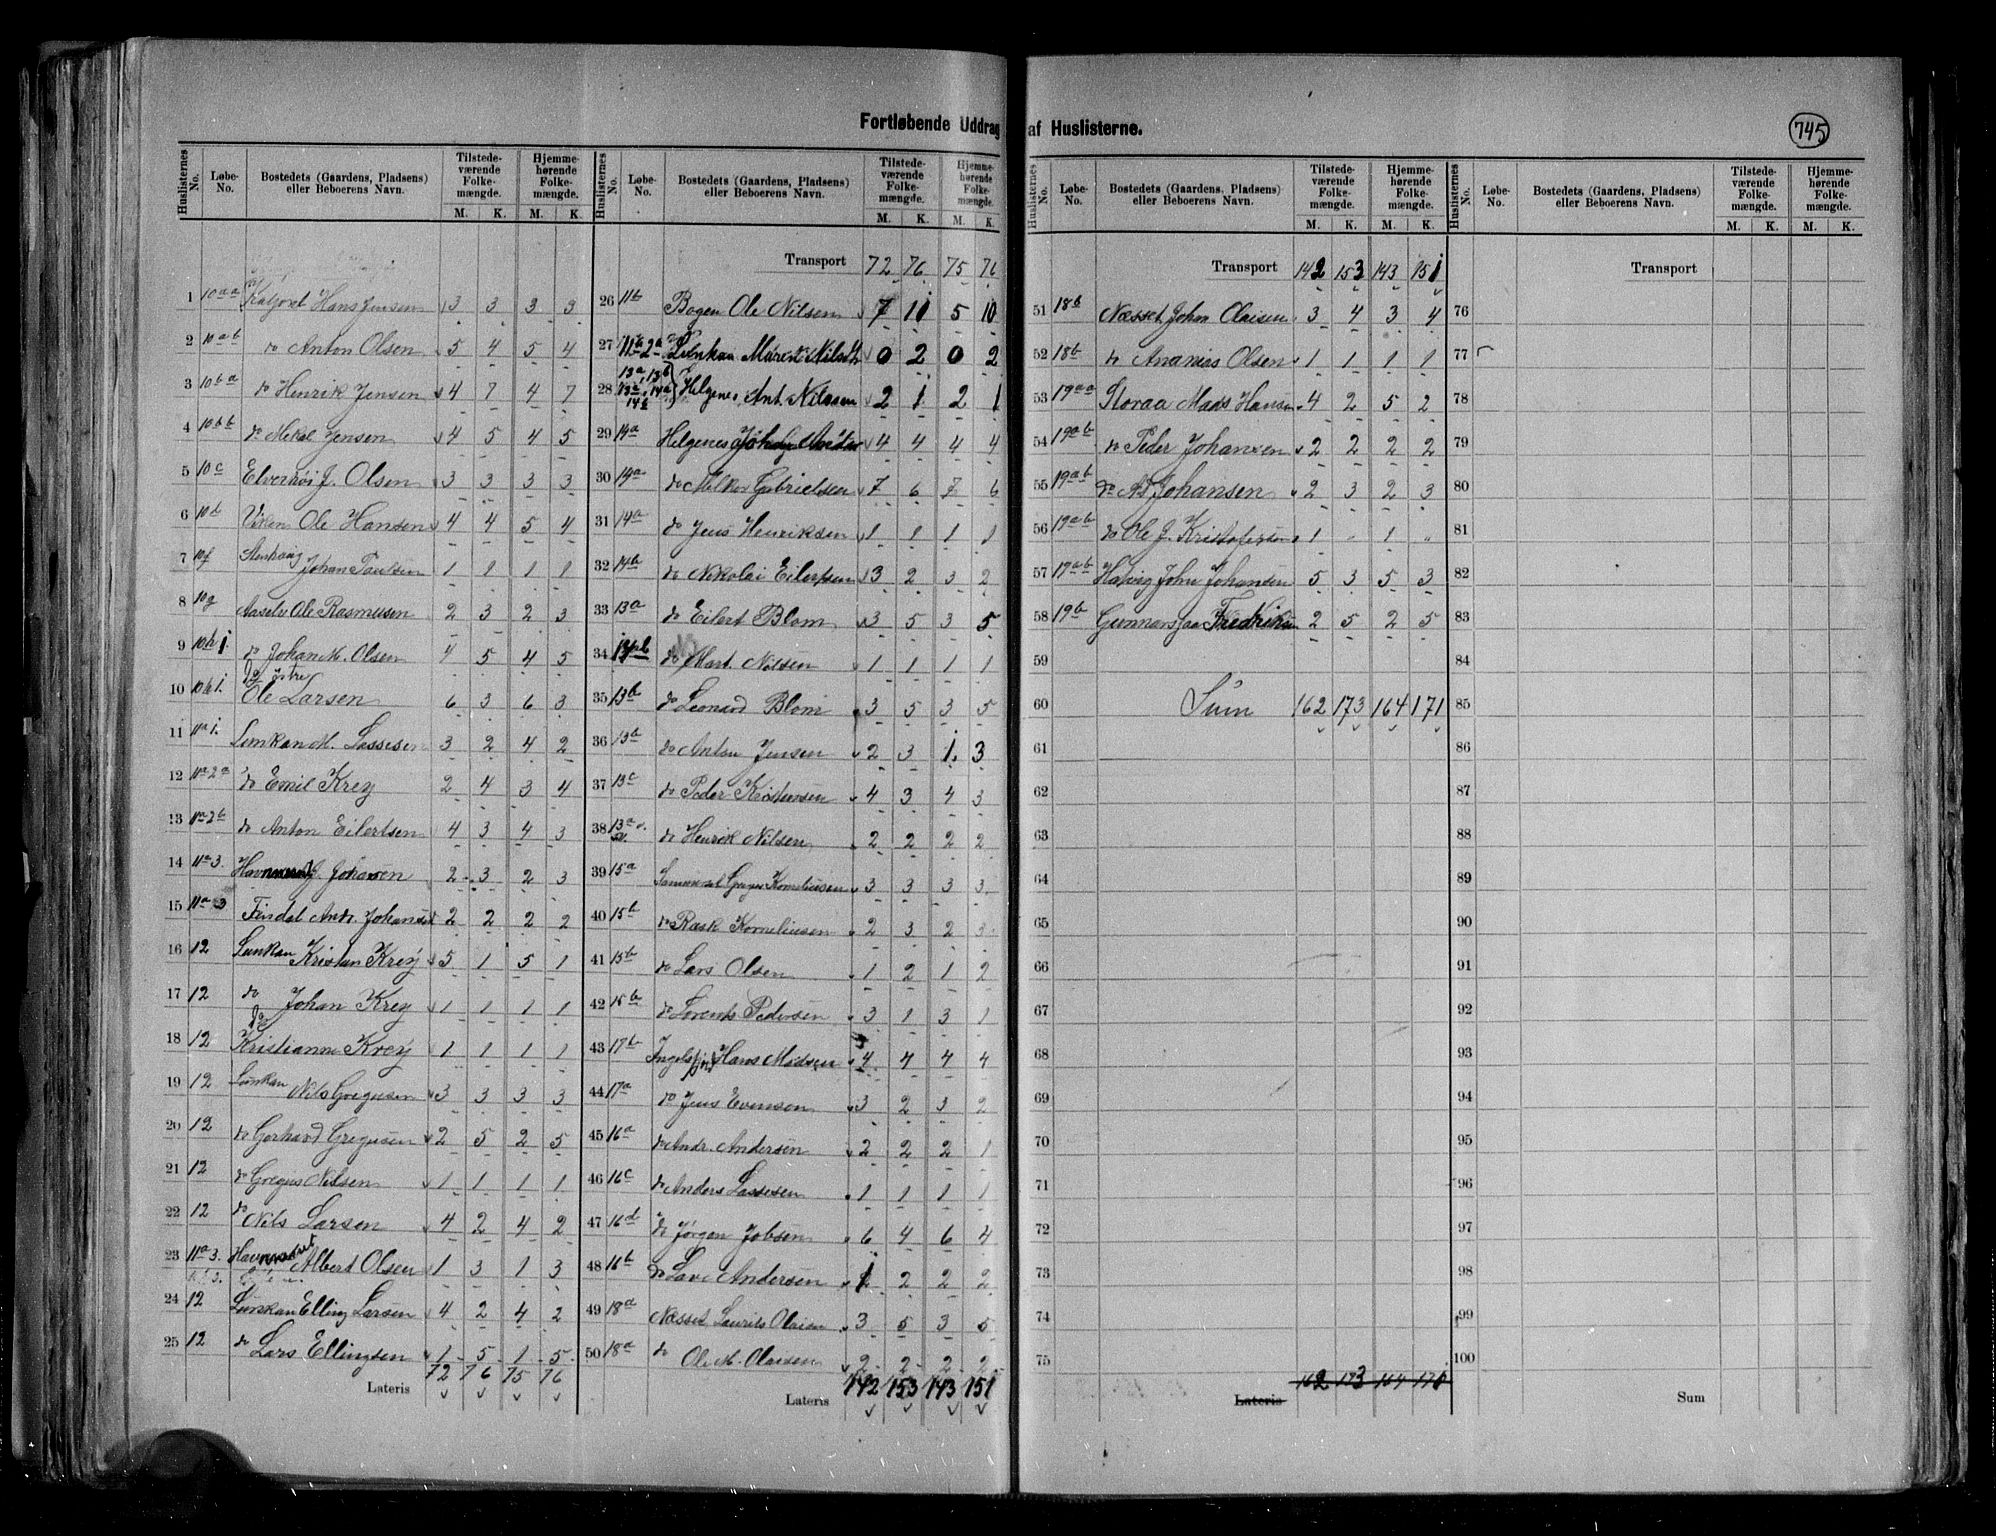 Fortløbende Uddrag af Huslisterne.
745
Huslisternes No. Løbe-No. Bostedets (Gaardens, Pladsens) eller Beboerens Navn. Tilstedeværende Folkemængde. Hjemmehørende Folkemængde.
M. K. M. K.
1 10aa Hans Jensen 3 3 3 3
2 10ab do Anton Olsen 5 4 5 4
3 10ba do Henrik Jensen 4 7 4 7
4 10bb do Mekal Jensen 4 5 4 5
5 10c Elverhöi J. Olsen 3 3 3 3
6 Ole Hansen 4 4 5 4
7 10f Johan Paulsen 1 1 1 1
8 10g Aaselv Ole Rasmusen 2 3 2 3
9 10h1 do Johan M. Olsen 4 5 4 5
10 10h1. do östre Ole Larsen 6 3 6 3
11 11a1. Lunkan M. Lassesen 3 2 4 2
12 11a2a do Emil Krey 2 4 3 4
13 11a2b do Anton Eilertsen 4 3 4 3
14 11a3. J. Johansen 2 3 2 3
15 11a3 Findal Andr. Johansen 2 2 2 2
16 12 Lunkan Kristian Krey 5 1 5 1
17 12 do Johan Krey 1 1 1 1
18 12 do Kristianne Krey 1 1 1 1
19 12 Lunkan Nils Gregusen 3 3 3 3
20 12 do Gerhard Gregusen 2 5 2 5
21 12 do Gregus Nilsen 1 1 1 1
22 12 do Nils Larsen 4 2 4 2
23 11a3. Havnnæset Albert Olsen 1 3 1 3
24 12 Lunkan Elling Larsen 4 2 4 2
25 12 do Lars Ellingsen 1 5 1 5
Lateris 72 76 75 76
Huslisternes No. Løbe-No. Bostedets (Gaardens, Pladsens) eller Beboerens Navn. Tilstedeværende Folkemængde. Hjemmehørende Folkemængde.
M. K. M. K.
Transport 72 76 75 76
26 11b Bogen Ole Nilsen 7 11 5 10
27 11a2a Lunkan 0 2 0 2
28 13a, 13b 14a 14b Helgenes Ant. Nilssen 2 1 2 1
29 14a Helgenes 4 4 4 4
30 14a do Melkor Gabrielsen 7 6 7 6
31 14a do Jens Henriksen 1 1 1 1
32 14b do Nikolai Eilertsen 3 2 3 2
33 13a do Eilert Blom 3 5 3 5
34 do Mart. Nilsen 1 1 1 1
35 13b do Leonard Blom 3 5 3 5
36 13b do Anton Jensen 2 3 1 3
37 13c do Peder Kristiansen 4 3 4 3
38 13a do Henrik Nilsen 2 2 2 2
39 15a Gregus Korneliusen 3 3 3 3
40 15b do Rask Korneliusen 2 3 2 3
41 15b do Lars Olsen 1 2 1 2
42 15b do Lorents Pedersen 3 1 3 1
43 17b Hans Madsen 4 4 4 4
44 17a do Jens Evensen 3 2 3 2
45 16a do Andr. Andersen 2 2 2 1
46 16c do Anders Lassesen 1 1 1 1
47 16d do Jørgen Jobsen 6 4 6 4
48 16b do Andersen 1 2 2 2
49 18a Næsset Laurits Olaisen 3 5 3 5
50 18a do Ole M. Olaisen 2 2 2 2
Lateris 142 153 143 151
Huslisternes No. Løbe-No. Bostedets (Gaardens, Pladsens) eller Beboerens Navn. Tilstedeværende Folkemængde. Hjemmehørende Folkemængde.
M. K. M. K.
Transport 142 153 143 151
51 18b Næsset John Olaisen 3 4 3 4
52 18b do Ananias Olsen 1 1 1 1
53 19aa Storaa Mads Hansen 4 2 5 2
54 19ab do Peder Johansen 2 2 2 2
55 19ab do Johansen 2 3 2 3
56 19ab do Ole J. Kristofersen 1 " 1 "
57 19ab John Johansen 5 3 5 3
58 19b Fredriksen 2 5 2 5
59
60 Sum 162 173 164 171
61
62
63
64
65
66
67
68
69
70
71
72
73
74
75
Lateris 162 173 164 171
Huslisternes No. Løbe-No. Bostedets (Gaardens, Pladsens) eller Beboerens Navn. Tilstedeværende Folkemængde. Hjemmehørende Folkemængde.
M. K. M. K.
Transport
76
77
78
79
80
81
82
83
84
85
86
87
88
89
90
91
92
93
94
95
96
97
98
99
100
Sum